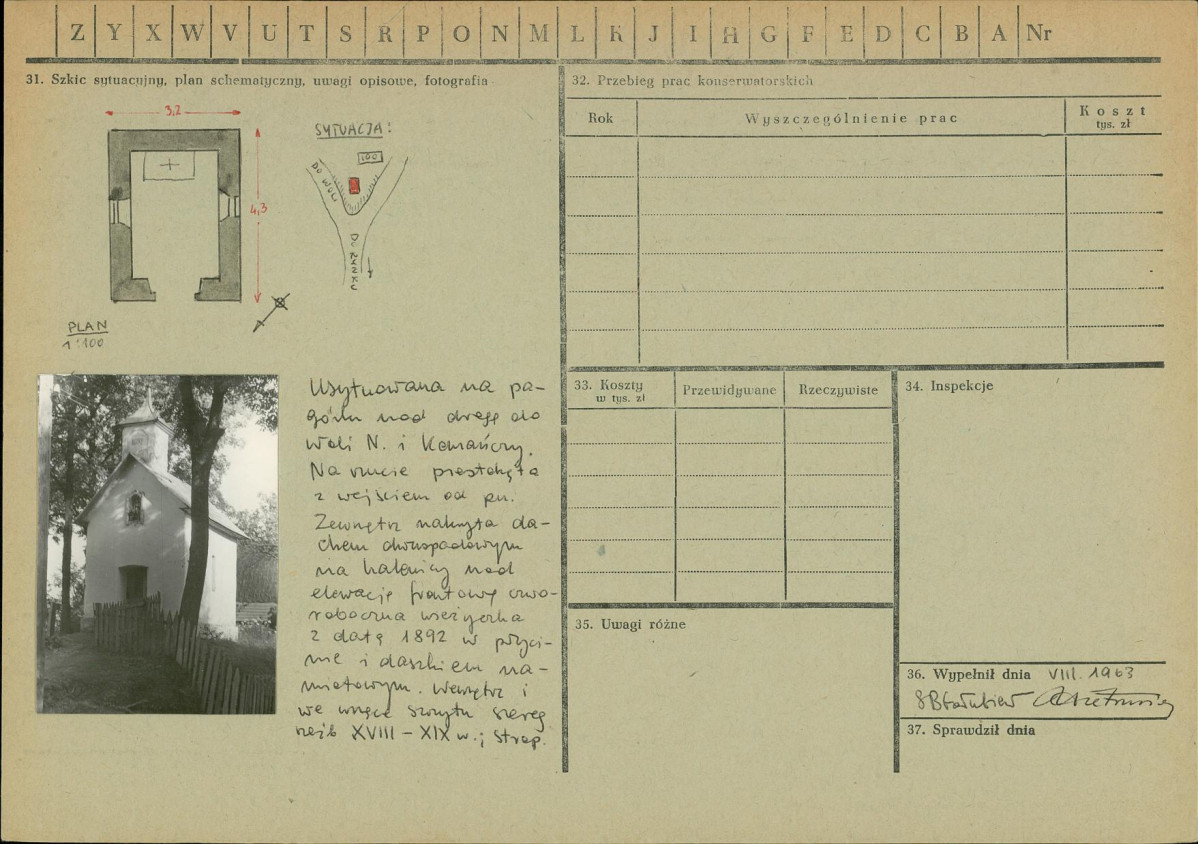 Z Y X W V U T S R P O N M L K J I H G F E D C B A Nr
31. Szkic sytuacyjny, plan schematyczny, uwagi opisowe, fotografia
3,2
4,3
PLAN
1:100
SYTUACJA:
100
DO WOLI
Usytuowana na pa-
górku nad drogą do
Woli N. i Komańczy.
Na rzucie prostokąta
z wejściem od pn.
Zewnątrz nakryta da-
chem dwuspadowym
na kalenicy nad
elewacją frontową czwo-
roboczna wieżyczka
z datą 1892 w
i daszkiem na-
miotowym. Wewnątrz i
we wnęce szczytu szereg
rzeźb XVIII – XIX w.; strop.
32. Przebieg prac konserwatorskich
Rok
Wyszczególnienie prac
Koszt
tys. zł
33. Koszty
w tys. zł
Przewidywane
Rzeczywiste
34. Inspekcje
35. Uwagi różne
36. Wypełnił dnia VIII. 1963
37. Sprawdził dnia